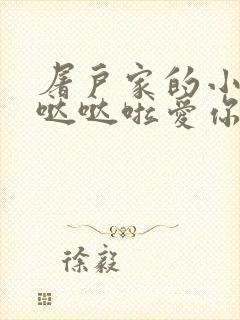 屠户家的小
哒哒啦爱你
徐毅